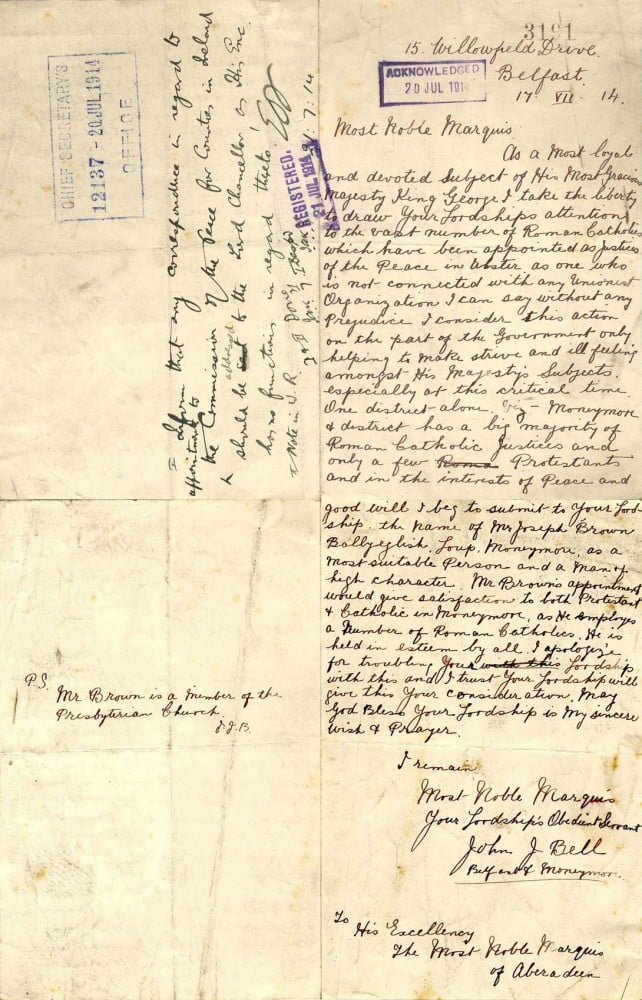 3191
15. Willowfield Drive.
Belfast.
17. VII. 14.
ACKNOWLEDGED
20 JUL 1914
Most Noble Marquis
As a most loyal
and devoted Subject of His Most Gracious
Majesty King George I take the liberty
to draw Your Lordships attention
to the vast number of Roman Catholics
which have been appointed as Justices
of the Peace in Ulster. as one who
is not connected with any Unionist
Organization I can say without any
Prejudice I consider this action
on the part of the Government only
helping to make strive and ill feeling
amongst His Majesty's Subjects.
especially at this critical time
One district alone, viz - Moneymore
& district has a big majority of
Roman Catholic Justices and
only a few Roma Protestants
and in the interests of Peace and
good will I beg to submit to Your Lord-
ship. the name of Mr Joseph Brown
Ballyeglish, Loup, Moneymore, as a
most suitable Person and a Man of
high character. Mr Brown's appointment
would give satisfaction to both Protestant
& Catholic in Moneymore, as He employes
a number of Roman Catholics. He is
held in esteem by all. I apologize
for troubling Your with this Lordship
with this and I trust Your Lordship will
give this Your consideration. May
God Bless Your Lordship is My sincere
wish & Prayer.
I remain
Most Noble Marquis
Your Lordship's Obedient Servant
John J Bell
Belfast & Moneymore.
To His Excellency
The Most Noble Marquis
of Aberadeen
P.S.
Mr Brown is a member of the
Presbyterian Church
J.J.B.
CHIEF SECRETARY'S
12137 - 20 JUL 1914
OFFICE
I Inform that any correspondence in regard to
appointments to
the Commission of the Peace for Counties in Ireland
should be addressed to the Lord Chancellor as His Exc
has no functions in regard thereto.
Note in I. R.
21. 7. 14
REGISTERED.
21 JUL 1914